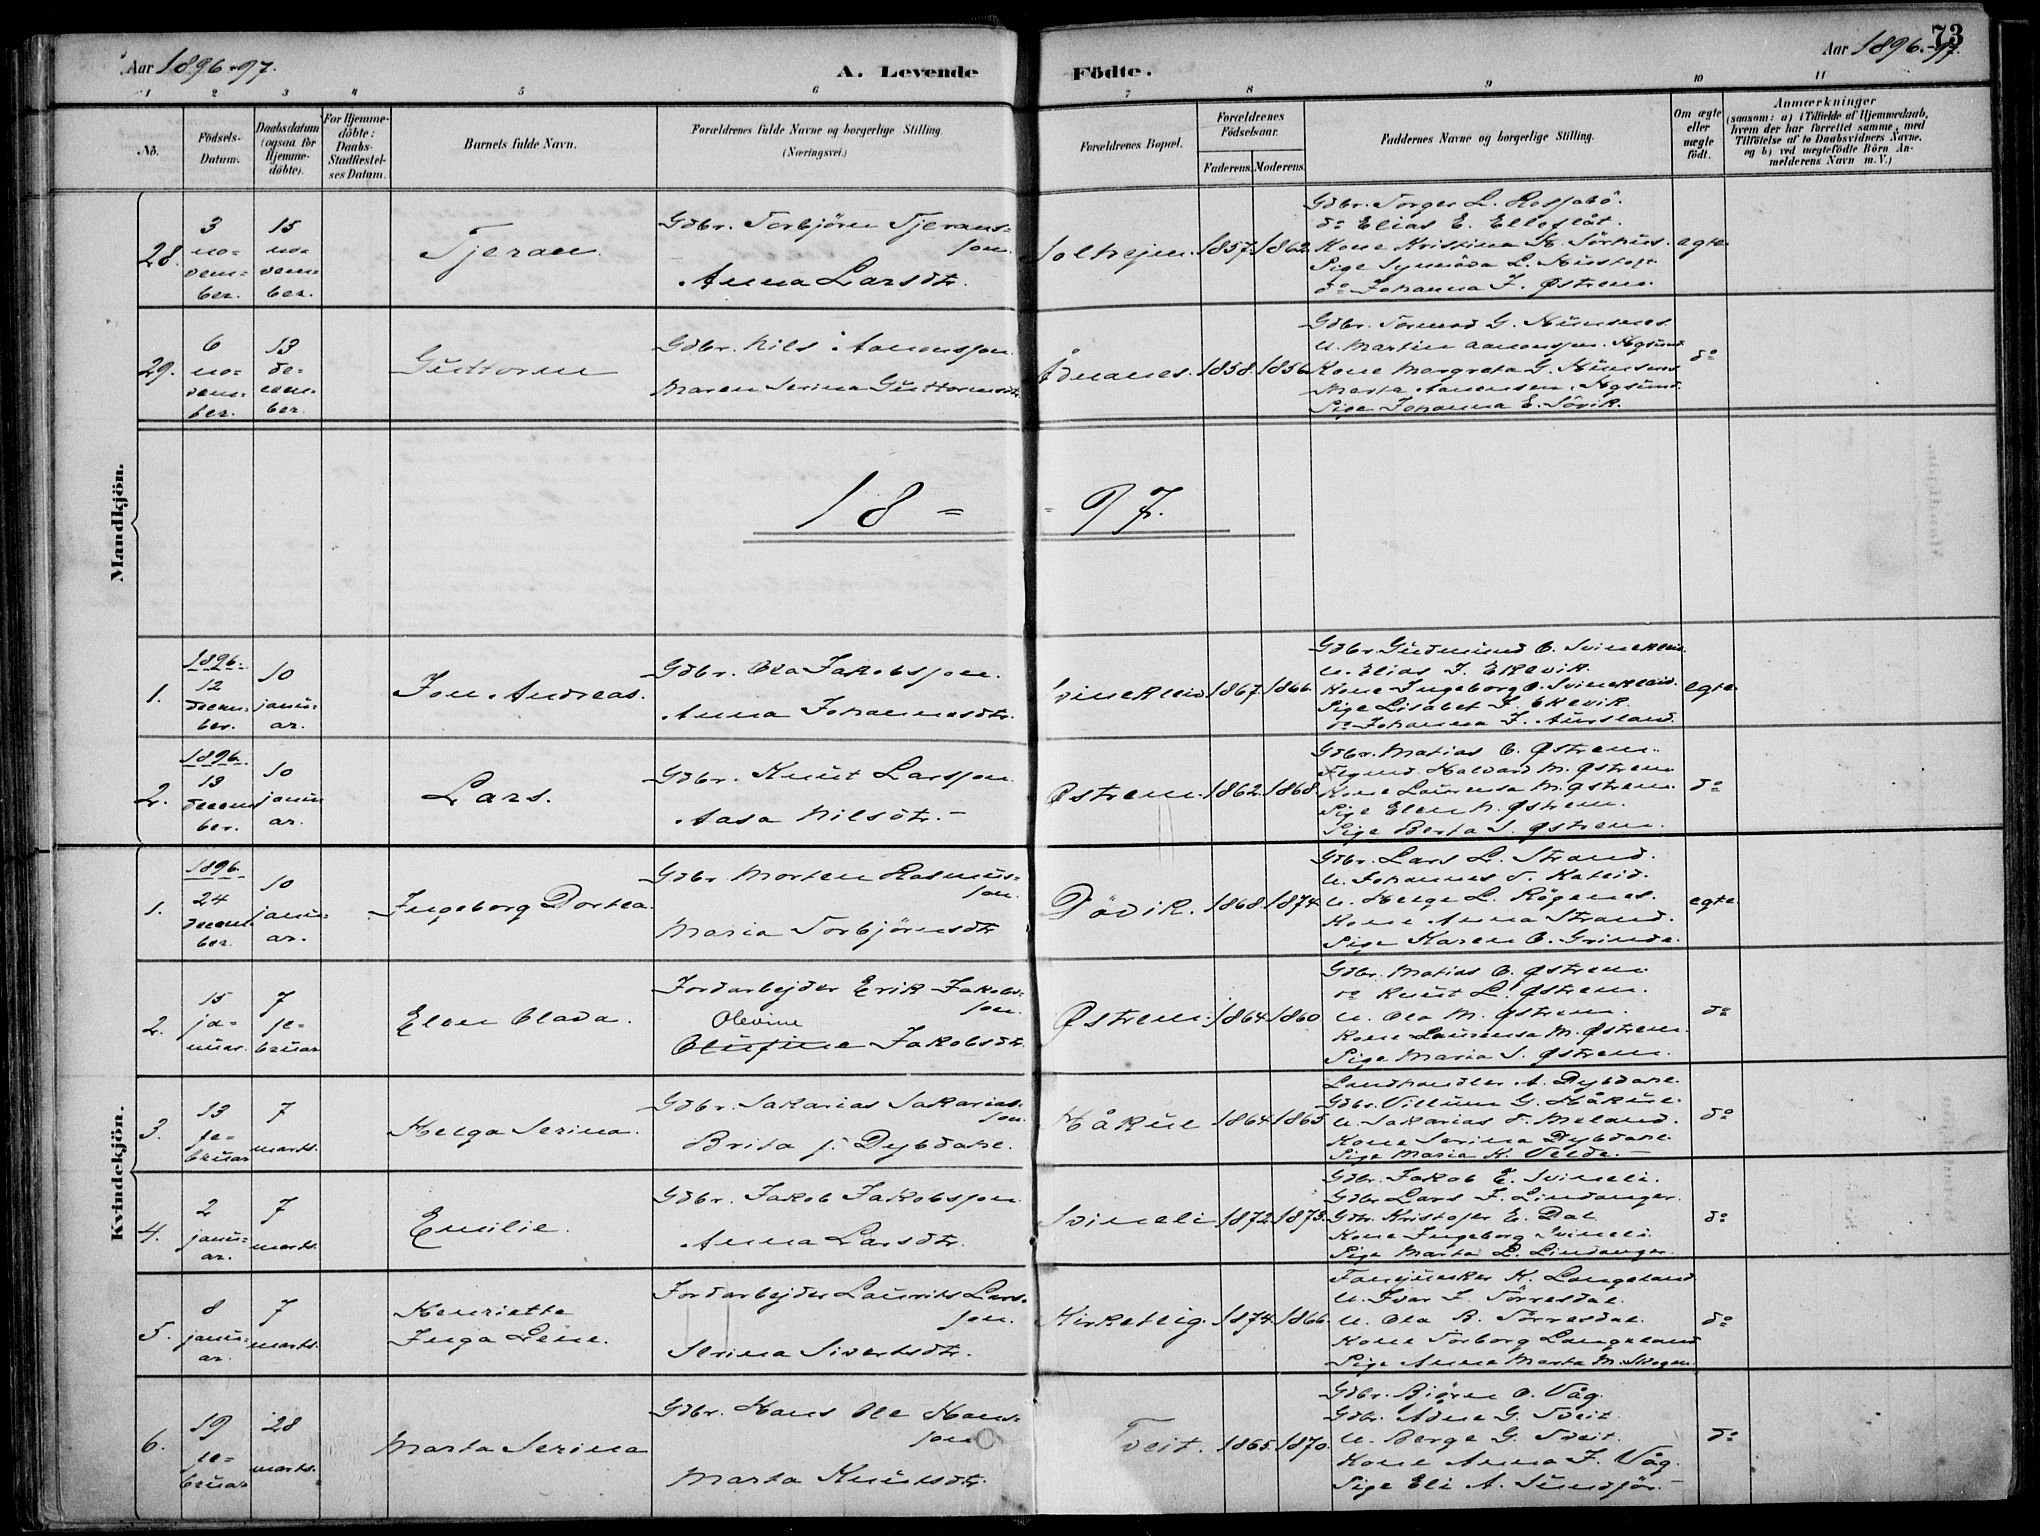 Aar 1896-97.
A. Levende Födte.
Aar 1896-97.
73
1 2 3 4 5 6 7 8 9 10 11
No.
Födsels-Datum.
Daabsdatum (ogsaa for Hjemme-döbte).
For Hjemme-döbte: Daabs-Stadfæstel-ses Datum.
Barnets fulde Navn.
Forældrenes fulde Navne og borgerlige Stilling.
(Næringsvei.)
Forældrenes Bopæl.
Forældrenes Födselsaar.
Faderens. Moderens.
Faddernes Navne og borgerlige Stilling.
Om ægte eller uægte födt.
Anmærkninger
(saasom: a) i Tilfælde af Hjemmedaab, hvem der har forrettet samme, med Tilföielse af to Daabsvidners Navne, og b) ved uægtefödte Börn Anmelderens Navn m. V.)
Mandkjön.
28. 3 november. 15 november. Tjeran.
Gdbr. Torbjörn Tjerans-
son.
Anna Larsdtr.
Solhejm. 1857. 1862.
Gdbr. Torger L. Rossabö.
do Elias E.
Kone Kristina
Pige Synnöva L.
do Johanna J. Østrem.
egte
29. 6 november. 13 december. Guttorm
Gdbr. Nils Aamonsson.
Maren Serina Guttormsdtr.
Ådnanes. 1858. 1856
Gdbr. Tormod G. Hunsnes.
U. Martin Aamonsson.
Kone Margreta G. Hunsnes
Marta Aamonsen.
Pige Johanna E. Sövik.
do
18 = = 97.
1. 1896. 12 december. 10 januar. Jon Andreas.
Gdbr. Ola Jakobsson.
Anna Johannesdtr.
Svinekleiv 1867. 1866.
Gdbr. Gudmund O. Svinekleiv.
U. Elias J. Ekevik.
Kone Ingeborg O. Svinekleiv.
Pige Lisabet J. Ekevik.
do Johanna J. Aursland.
egte
2. 1896. 13 december. 10 januar. Lars.
Gdbr. Knut Larsson.
Aasa Nilsdtr. -
Østrem. 1862. 1868.
Gdbr. Matias O. Østrem.
Halvard M. Østrem
Kone Laurensa M. Østrem.
Pige Elen N. Østrem.
Pige Berta S. Østrem.
do
Kvindekjön.
1. 1896. 24 december. 10 januar. Ingeborg Dortea.
Gdbr. Morten Rasmus-
son.
Maria Torbjörnsdtr
Dövik. 1868. 1874.
Gdbr. Lars L. Strand.
U. Johannes
U. Helge L. Rögenes.
Kone Anna Strand.
Pige Karen O. Grinde.
egte
2. 15 januar. 7 februar Elen Olava.
Jordarbejder Erik Jakobs-
son.
Olevine
Olufine Jakobsdtr.
Østrem. 1864. 1860.
Gdbr. Matias O. Østrem.
do Knut L. Østrem.
U. Ola M. Østrem.
Kone Laurensa M. Østrem.
Pige Maria S. Østrem.
do
3. 13 februar 7 marts. Helga Serina.
Gdbr. Sakarias Sakarias-
son.
Brita f. Dybdahl.
Håkul 1864. 1865.
Landhandler A. Dybdahl.
Gdbr. Villum G. Håkul.
U. Sakarias Meland.
Kone Serina Dybdahl.
Pige Maria K. Velde. -
do
4. 2 januar. 7 marts. Emilie.
Gdbr. Jakob Jakobsson.
Anna Larsdtr.
Svineli 1872. 1873.
Gdbr. Jakob E. Svineli.
Gdbr. Lars J. Lindanger.
Gdbr. Kristofer E. Dal
Kone Ingeborg Svineli.
Pige Marta L. Lindanger.
do
5. 8 januar. 7 marts. Henriette
Inga Lene.
Jordarbejder Laurits Lars-
son.
Serina Sivertsdtr.
Kirketeig. 1874. 1866.
K. Langeland
U. Ivar J. Törresdal.
U. Ola B. Törresdal.
Kone Torborg Langeland
Pige Anne Marta M.
do
6. 19 februar 28 marts. Marta Serina
Gdbr. Hans Ole Hans-
son
Marta Knutsdtr.
Tveit. 1865. 1870.
Gdbr. Björn O. Våg.
Gdbr. Adne G. Tveit.
U. Berge G. Tveit.
Kone Anna J. Våg.
Pige Eli A. Sundför. -
do